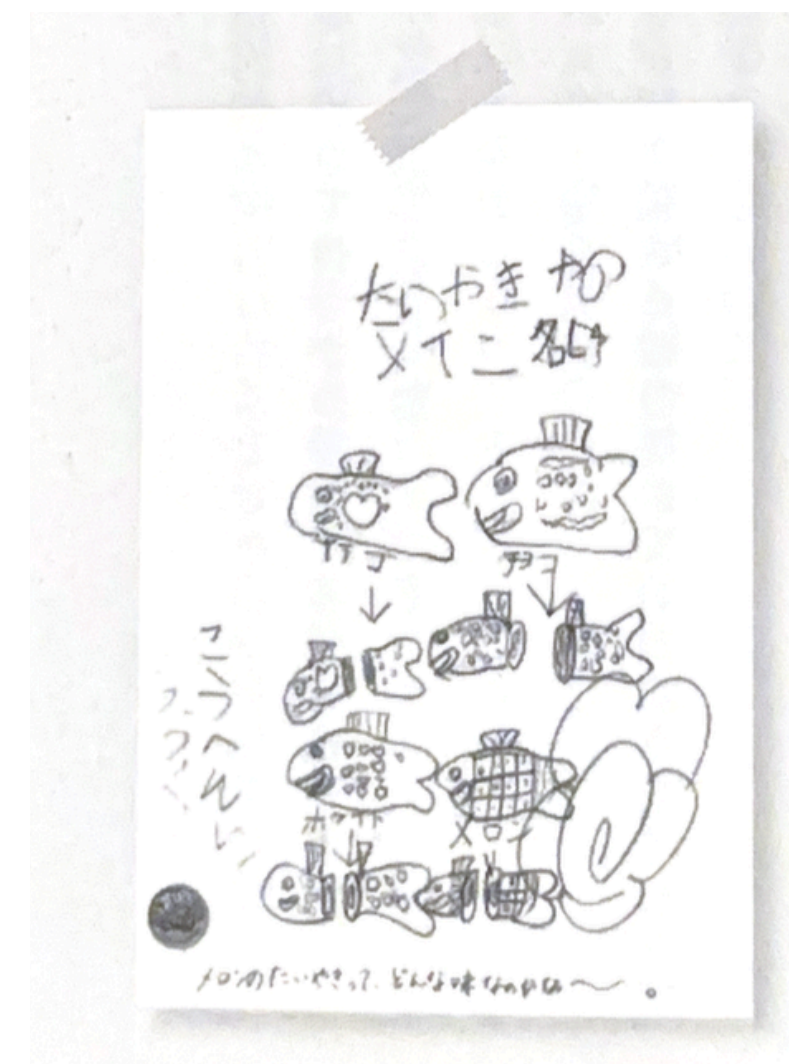 たいやきやの
メイニ名時
イチゴ
チョコ
ホワイト
メロン
こうへん
つづく
メロンのたいやきって、どんな味なのかな〜。